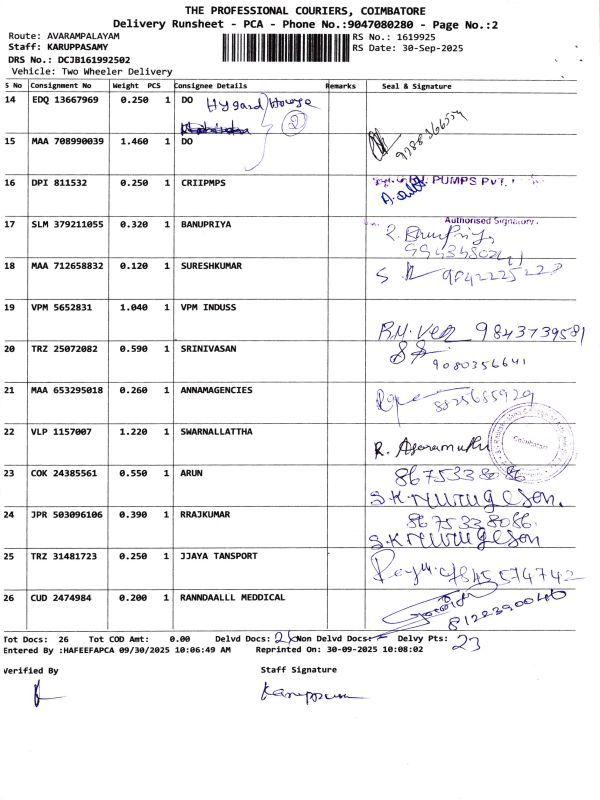 THE PROFESSIONAL COURIERS, COIMBATORE
Delivery Runsheet - PCA - Phone No.:9047080280 - Page No.:2
Route: AVARAMPALAYAM RS No.: 1619925
Staff: KARUPPASAMY RS Date: 30-Sep-2025
DRS No.: DCJB161992502
Vehicle: Two Wheeler Delivery
S No Consignment No Weight PCS Consignee Details Remarks Seal & Signature
14 EDQ 13667969 0.250 1 DO Hygard House 2
15 MAA 708990039 1.460 1 DO
16 DPI 811532 0.250 1 CRIIPMPS PUMPS PVT.
Authorised Signatory.
17 SLM 379211055 0.320 1 BANUPRIYA
18 MAA 712658832 0.120 1 SURESHKUMAR 9842225228
19 VPM 5652831 1.040 1 VPM INDUSS R.M. Vel 9843739581
20 TRZ 25072082 0.590 1 SRINIVASAN 9080356641
21 MAA 653295018 0.260 1 ANNAMAGENCIES 8825685929
22 VLP 1157007 1.220 1 SWARNALLATTHA R.
Coimbatore
23 COK 24385561 0.550 1 ARUN 8675338086
S.K. Murugesan.
24 JPR 503096106 0.390 1 RRAJKUMAR 8675338086.
S.K. Murugesan
25 TRZ 31481723 0.250 1 JJAYA TANSPORT 9845574742
26 CUD 2474984 0.200 1 RANNDAALLL MEDDICAL 8122390040
Tot Docs: 26 Tot COD Amt: 0.00 Delvd Docs: 26 Non Delvd Docs: Delvy Pts: 23
Entered By :HAFEEFAPCA 09/30/2025 10:06:49 AM Reprinted On: 30-09-2025 10:08:02
Verified By Staff Signature